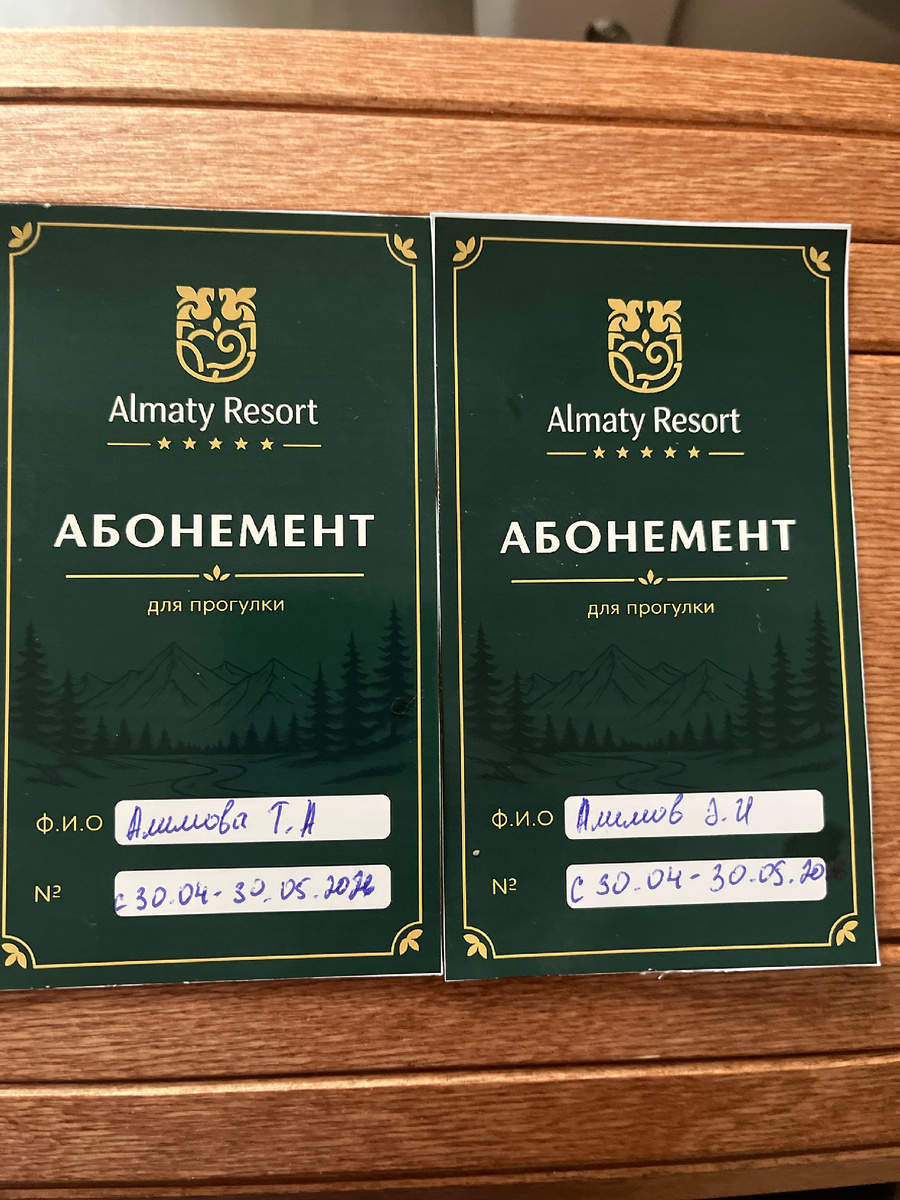 Almaty Resort
АБОНЕМЕНТ
для прогулки
Ф.И.О Алимова Т.А
№ с 30.04-30.05.2026
Almaty Resort
АБОНЕМЕНТ
для прогулки
Ф.И.О Алимов Э.И
№ с 30.04-30.05.20